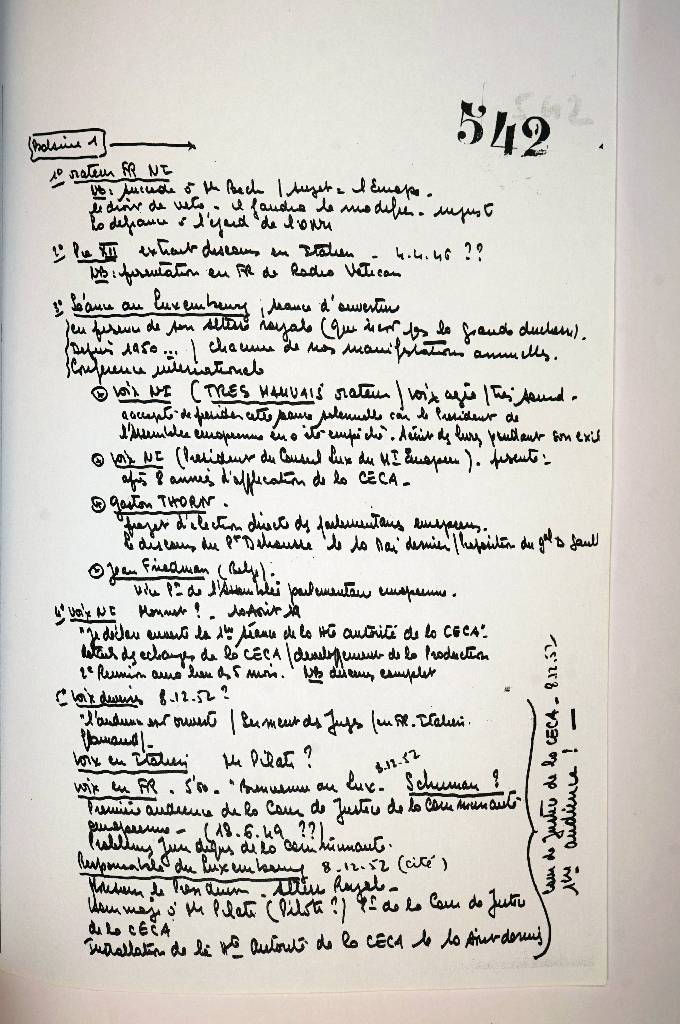 542
Bobine 1
1° orateur FR NI
NB: succède à Mr Bech / sujet = l'Europe.
le droit de veto - il faudra le modifier - injuste
la défiance à l'égard de l'ONU
2° Pie XII extrait discours en Italien - 4.4.46 ??
NB: présentation en FR de Radio Vatican
3° Séance au Luxembourg, séance d'ouverture
en présence de son altesse royale (que n'est pas la grande duchesse).
Depuis 1950 ... / chacune de nos manifestations annuelles.
Conférence internationale
voix NI (TRES MAUVAIS orateur / voix agée / très sourd -
accepté de présider cette séance solennelle car le Président de
l'Assemblée européenne en a été empêché. pendant son exil
voix NI (President du Conseil Lux du MT Européen). présente:
après 8 années d'application de la CECA -
Gaston THORN.
projet d'élection directe des parlementaires européens.
le discours du Pt Dehousse le 10 Mai dernier / l'opposition du gal De Gaulle
Jean Friedman (Belg).
Vice Pt de l'Assemblée parlementaire européenne.
4° voix NI Monnet ? - 10 Août
"Je déclare ouverte la 1ère séance de la Hte autorité de la CECA"
des échanges de la CECA / développement de la Production
2e Réunion aura lieu ds 5 mois. NB discours complet
5° voix diverses 8-12-52 ?
"l'audience est ouverte / Serment des Juges / en FR. Italien.
Flamand / -
voix en Italien Mr Pilati ?
8-12-52
voix en FR. 5'00. "Bienvenue au Lux. Schuman ?
Première audience de la Cour de Justice de la Communauté
européenne - (18.6.49 ??)
Problèmes juridiques de la Communauté.
Responsable du Luxembourg 8-12-52 (cité)
Monsieur le Président - Altesse Royale -
Hommage à Mr Pilati (Pilotti ?) Pt de la Cour de Justice
de la CECA
Installation de la Hte Autorité de la CECA le 10 Aout dernier
Cour de Justice de la CECA - 8.12.52
1ère audience ! —